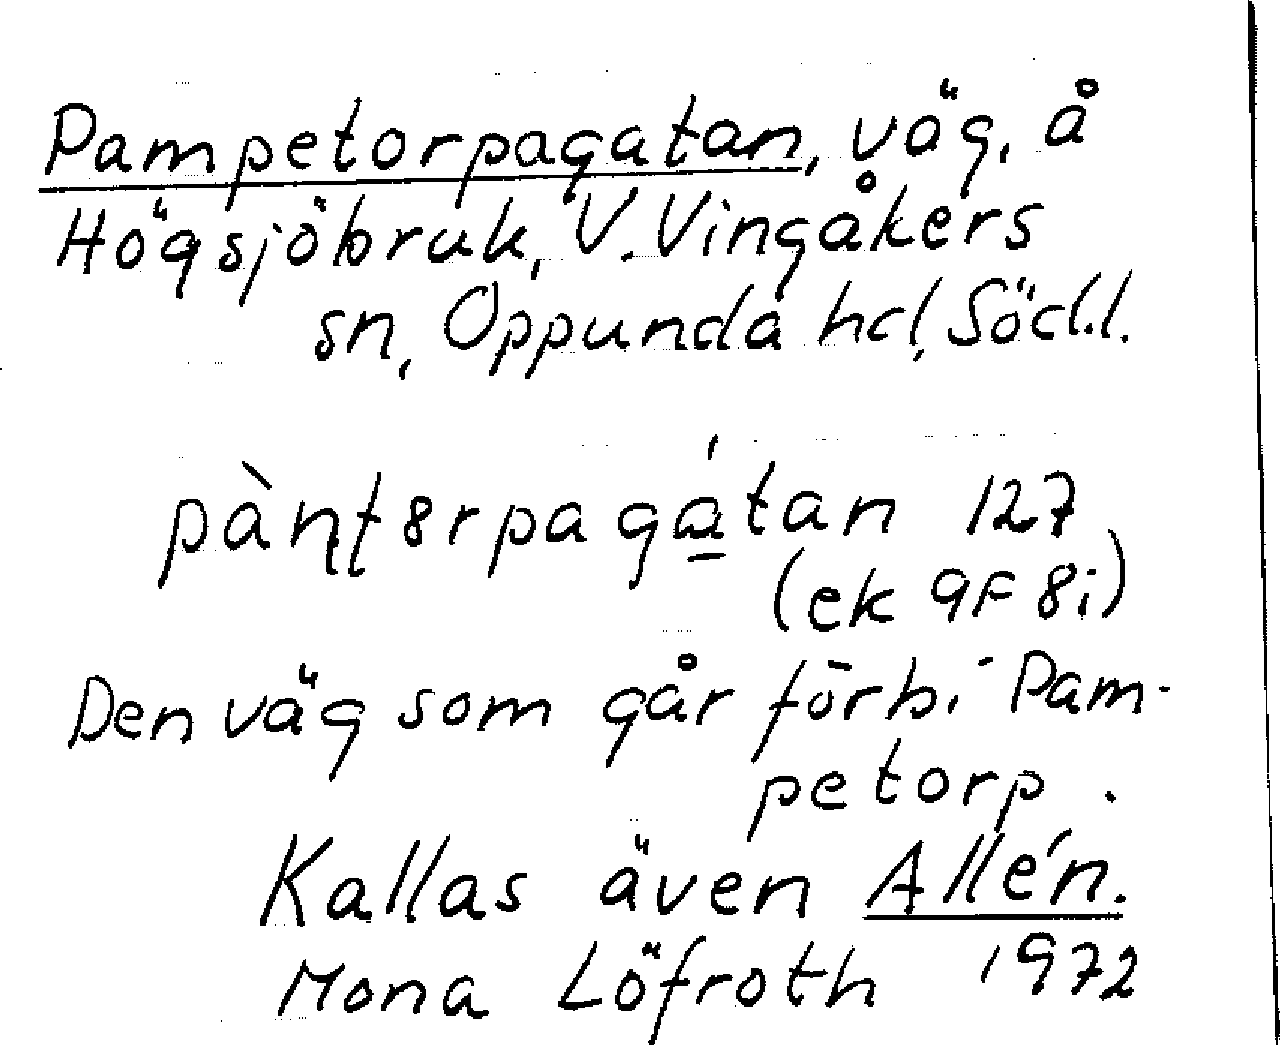 Pampetorpagatan, väg, å
Högsjöbruk, V. Vingåkers
sn, Oppunda hd, Södl.
pàn̩t8rpagátan 127
(ek 9F 8i)
Den väg som går förbi Pam-
petorp.
Kallas även Allén.
Mona Löfroth 1972